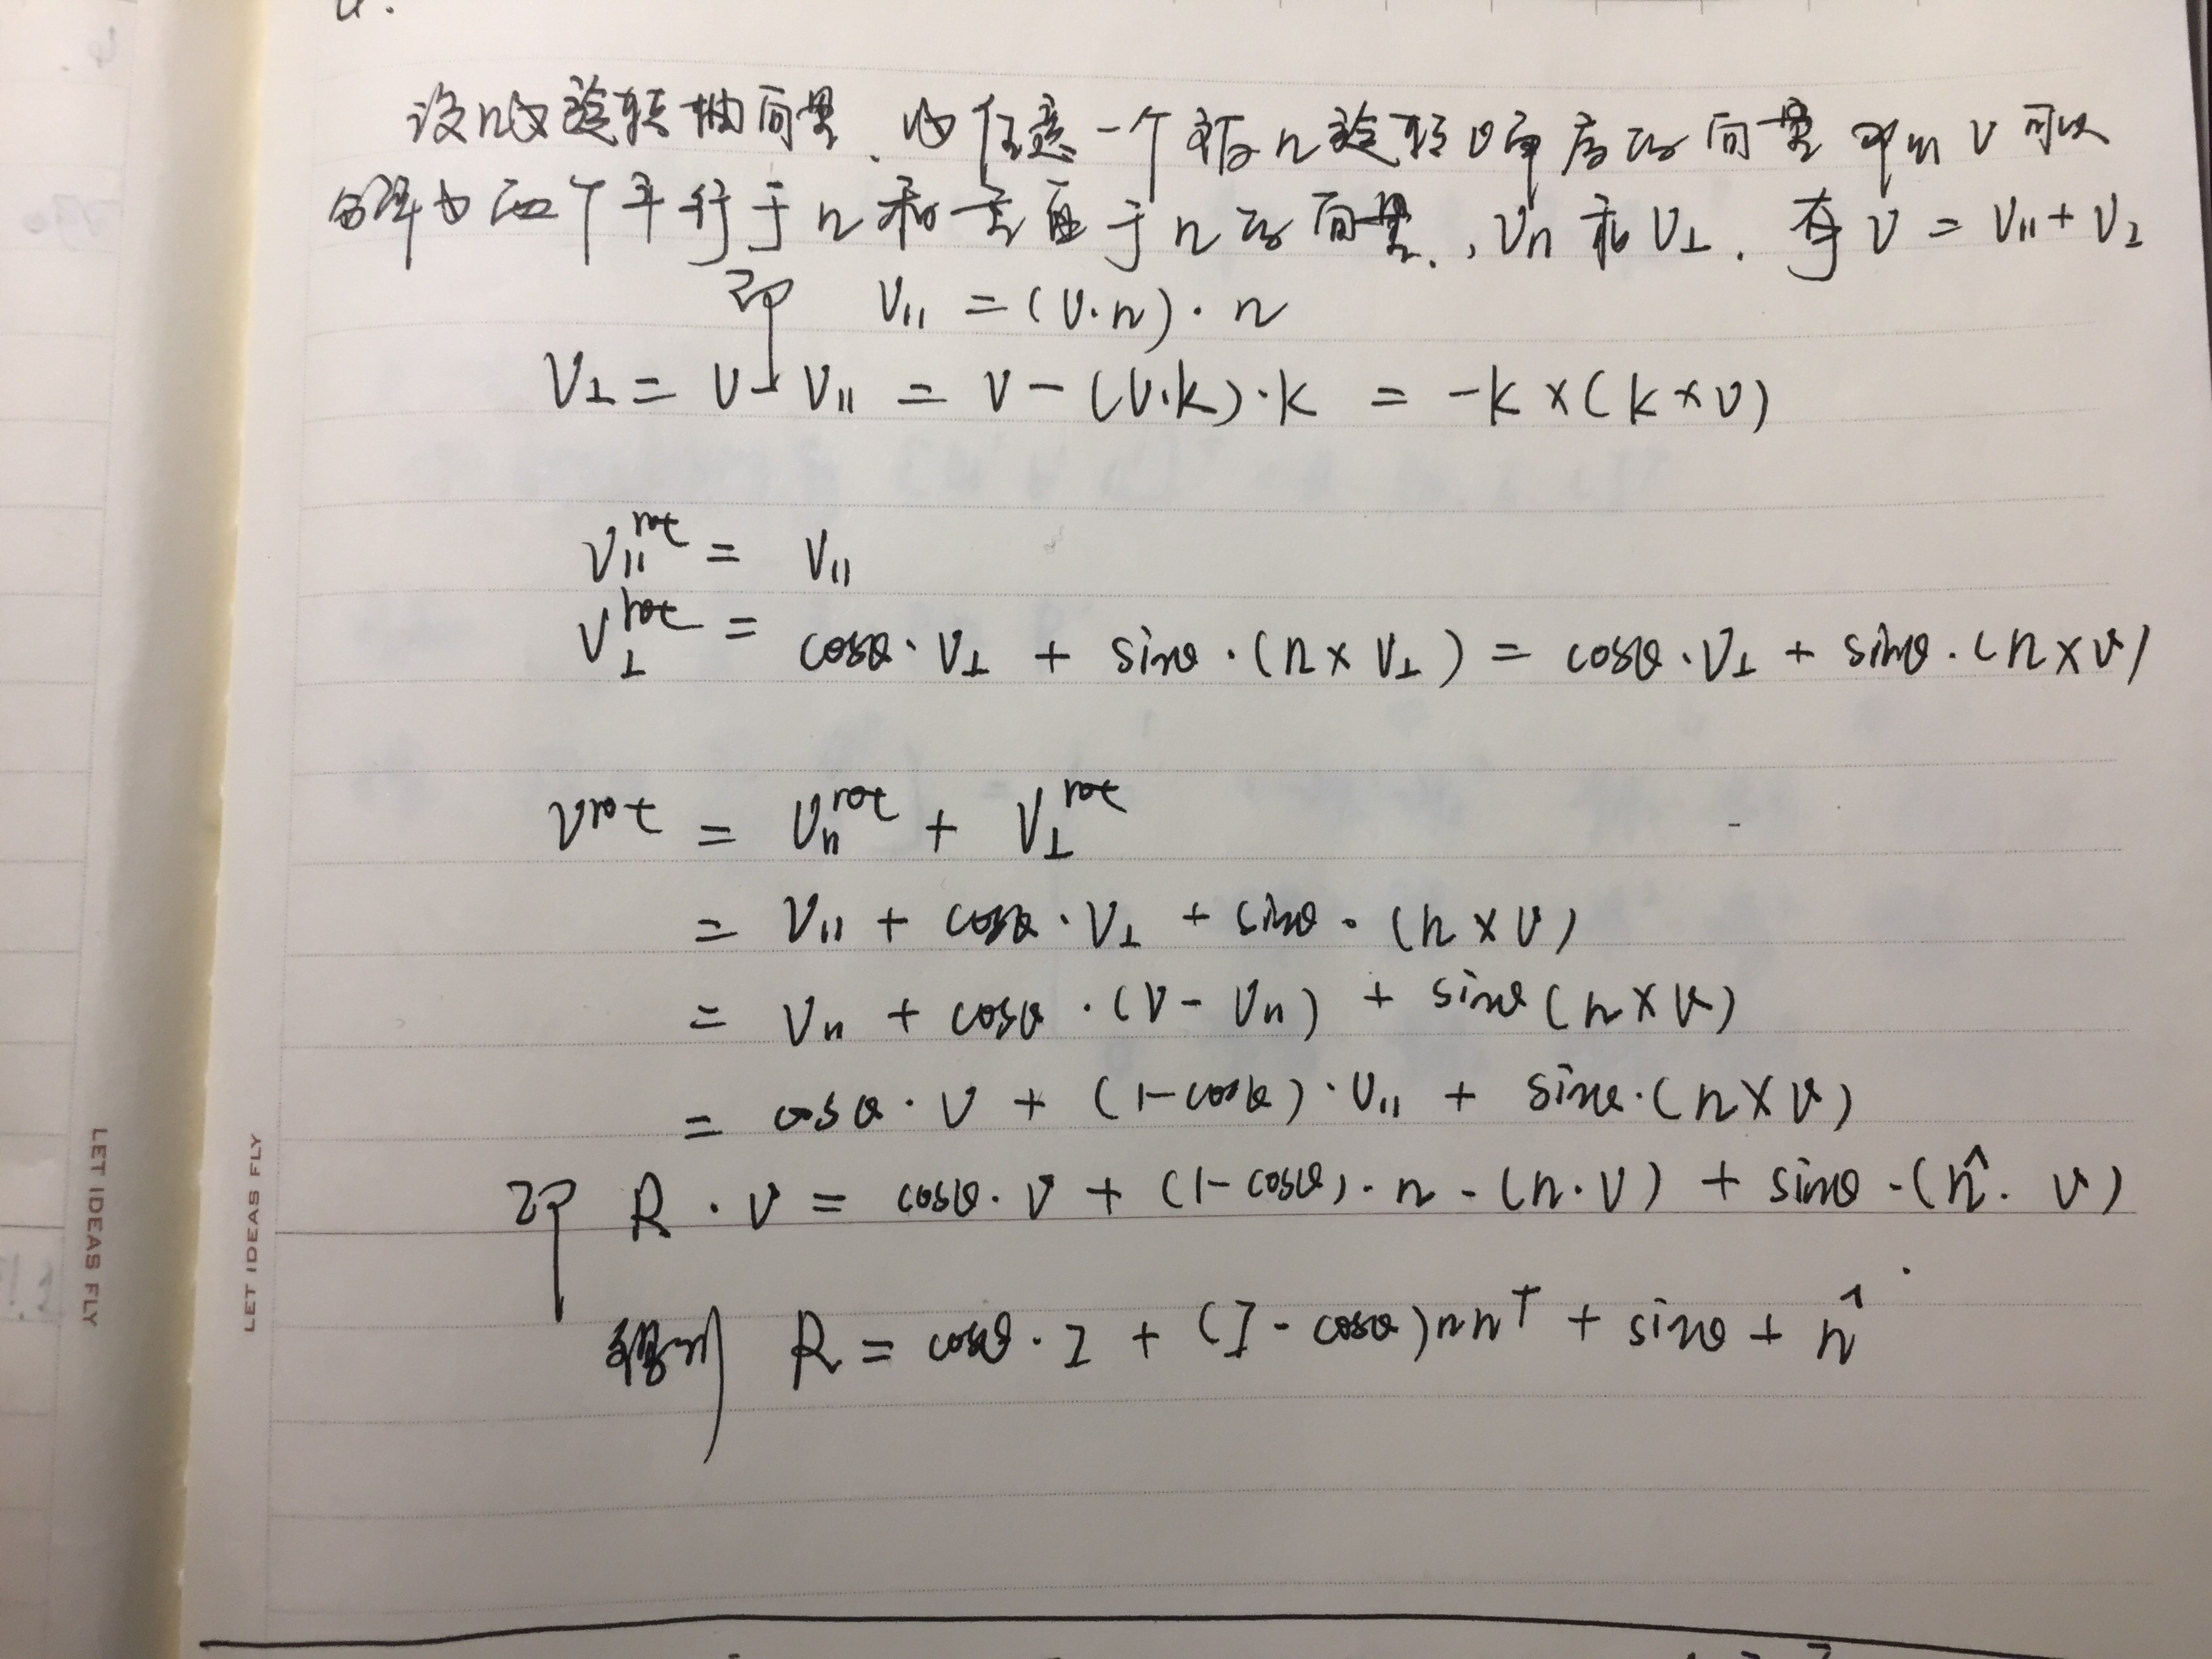 设n为旋转轴向量、v为任意一个被n旋转θ角后的向量 v可以
分解为两个平行于n和垂直于n的向量.,V∥和V⊥.有V = V∥+V⊥
即 V∥ = (V·n)·n
V⊥ = V - V∥ = V - (V·k)·k = -k×(k×v)
V∥^rot = V∥
V⊥^rot = cosθ·V⊥ + sinθ·(n×V⊥) = cosθ·V⊥ + sinθ·(n×v)
V^rot = V∥^rot + V⊥^rot
= V∥ + cosθ·V⊥ + sinθ·(n×v)
= V∥ + cosθ·(V-V∥) + sinθ(n×v)
= cosθ·V + (1-cosθ)·V∥ + sinθ·(n×v)
即 R·v = cosθ·V + (1-cosθ)·n·(n·V) + sinθ·(n^·v)
R = cosθ·I + (I-cosθ)nn^T + sinθ + n^
LET IDEAS FLY
LET IDEAS FLY